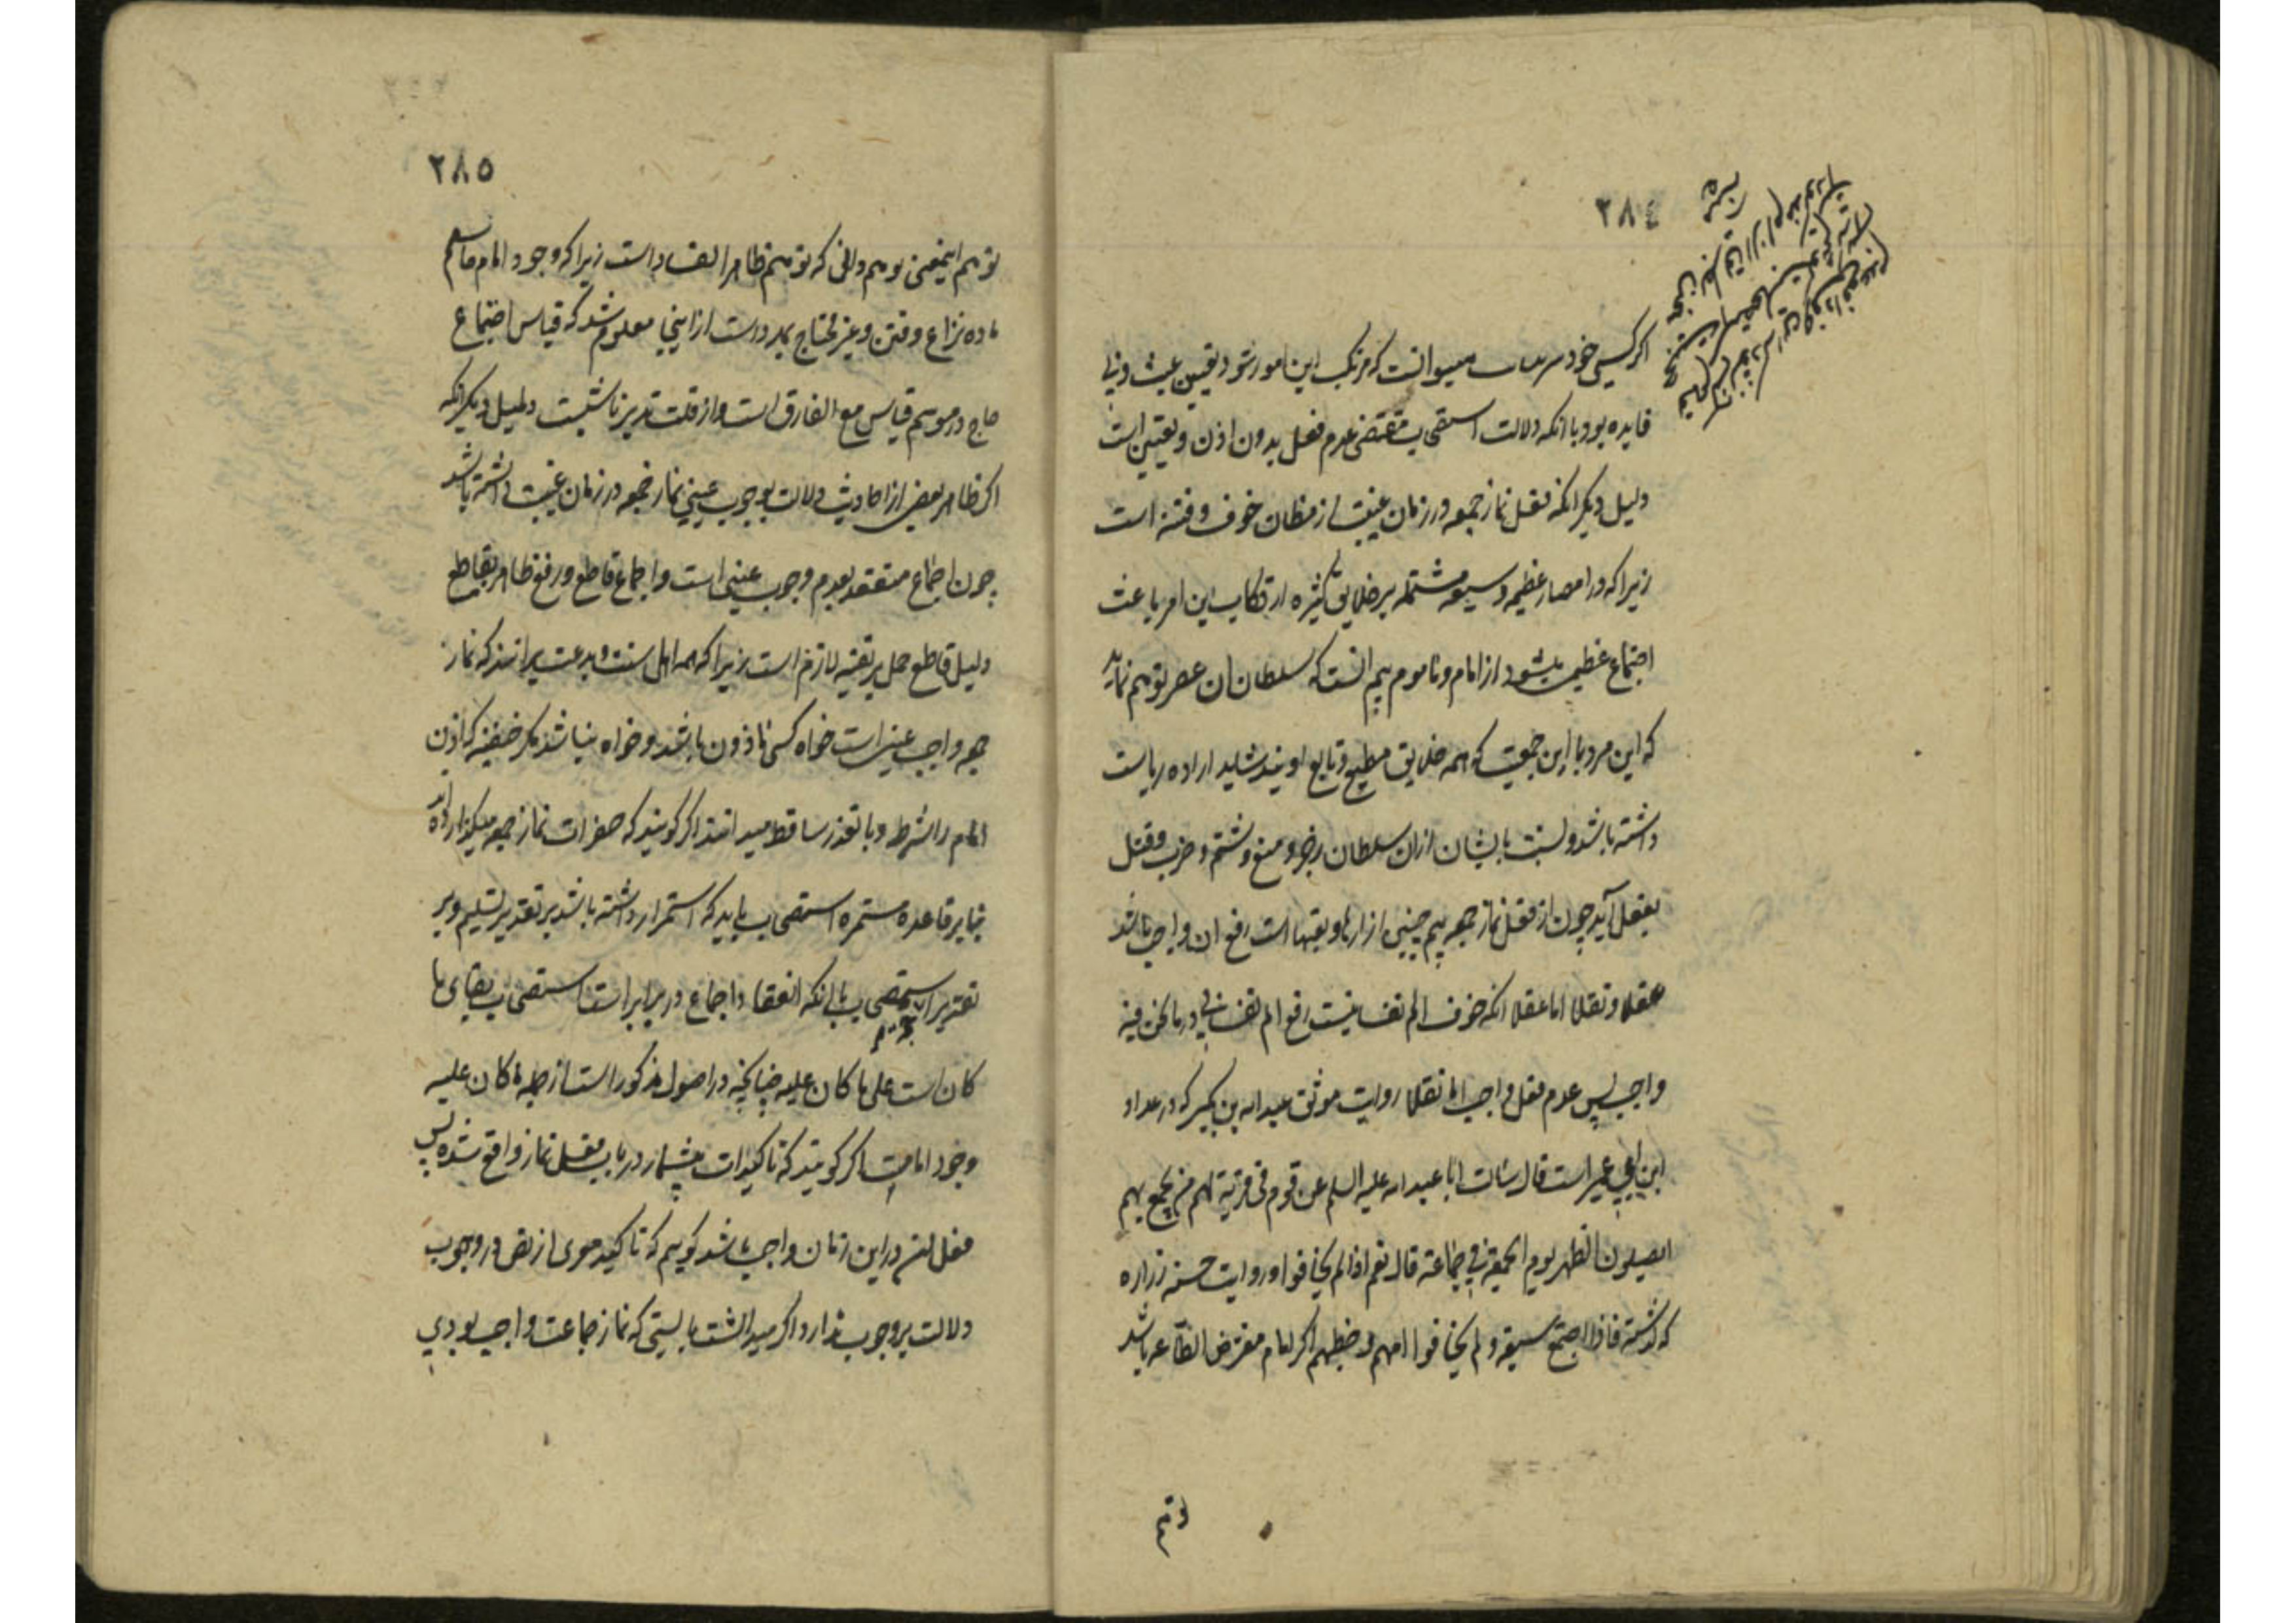 ٢٨٤
اکر کسی خود سر میتوانست که مرتکب این امور شود تعیین عبث و بی
فایده بود با انکه دلالت استصحاب مقتضی عدم فعل بدون اذن و تعیین است
دلیل دیکر انکه فعل نماز جمعه در زمان غیبت از مظان خوف و فتنه است
زیرا که در امصار عظیمه وسیعه مشتمله بر خلایق کثیره ارتکاب این امر باعث
اجتماع عظیم میشود از امام و ماموم بیم انست که سلطان ان عصر توهم نماید
که این مرد با این جمعیت که همه خلایق مطیع و تابع اویند شاید اراده ریاست
داشته باشد و نسبت بایشان ازان سلطان زجر و منع و شتم و ضرب و قتل
بفعل آید چون از فعل نماز جمعه بیم چنین ازارها و تعبها است رفع ان واجب باشد
عقلا و نقلا اما عقلا انکه خوف الم نفسانیست رفع الم نفسانی در ما نحن فیه
واجب پس عدم فعل واجب اما نقلا روایت موثق عبداله بن بکیر که در عداد
ابن ابی عمیر است قال سئلت ابا عبداله علیه السلم عن قوم فی قریة لهم من یجمع بهم
ایصلون الظهر یوم الجمعة فی جماعة قال نعم اذا لم یخافوا و روایت حسنه زراره
که کذشته فاذا اجتمع سبعة و لم یخافوا امهم و خطبهم اکر امام مفترض الطاعه باشد
توهم
٢٨٥
توهم اینمعنی توهم و اانی که توهم ظاهر الفساد است زیرا که وجود امام حاسم
ماده نزاع و فتن و غیر محتاج بمدد است از اینجا معلوم شد که قیاس اجتماع
حاج در موسم قیاس مع الفارق است و از قلت تدبر ناشیست دلیل دیکر انکه
اکر ظاهر بعضی از احادیث دلالت بوجوب عینی نماز جمعه در زمان غیبت داشته باشد
چون اجماع منعقد بعدم وجوب عینی است و اجماع قاطع و رفع ظاهر بقاطع
دلیل قاطع حمل بر تقیه لازم است زیرا که همه اهل سنت و بدعت برانند که نماز
جمعه واجب عینی است خواه کسی ماذون باشد و خواه نباشد مکر حنفیه که اذن
امام را شرط و با تعذر ساقط میدانند اکر کویند که حضرات نماز جمعه میکذارده اند
بنابر قاعده مستمره استصحاب باید که استمرار داشته باشد بر تقدیر تسلیم و بر
تقدیر استصحاب با انکه انعقاد اجماع در برابر است استصحاب بقای ما
کان است علی ما کان علیه چنانچه در اصول مذکور است از جمله ما کان علیه
وجود امامت اکر کویند که تاکیدات بیشمار در باب فعل نماز واقع شده پس
فعل ان در این زمان واجب باشد کوییم که تاکید معری از نص در وجوب
دلالت بر وجوب ندارد اکر میداشت بایستی که نماز جماعت واجب بودی